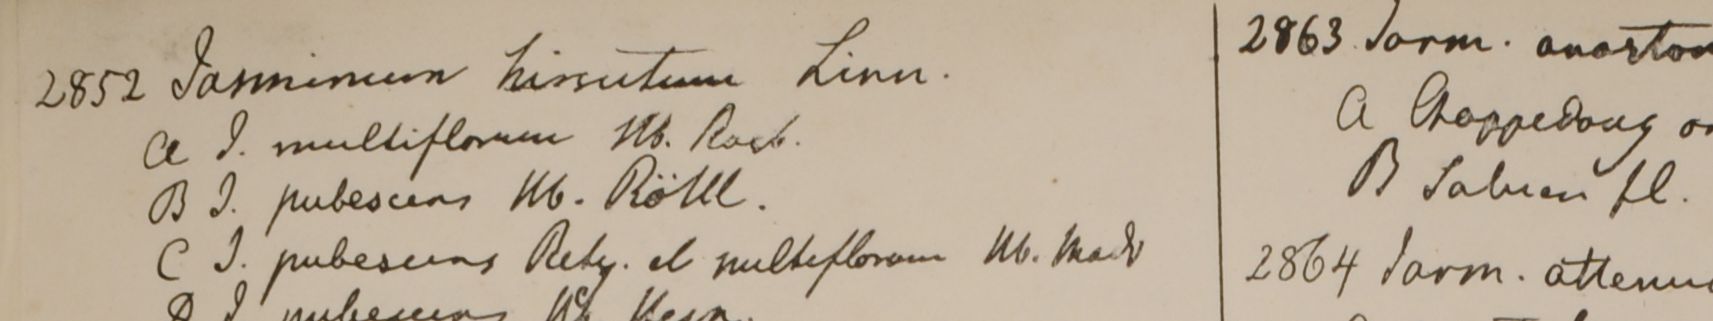 2852 Jasminum hirsutum Linn.
A J. multiflorum Hb. Roxb.
B J. pubescens Hb. Röttl.
C J. pubescens Retz. et multiflorum Hb. Madr
D J. pubescens Hb. Heyn.
2863 Jasm. anaston
A Choppedong or
B Saluen fl.
2864 Jasm. attenu